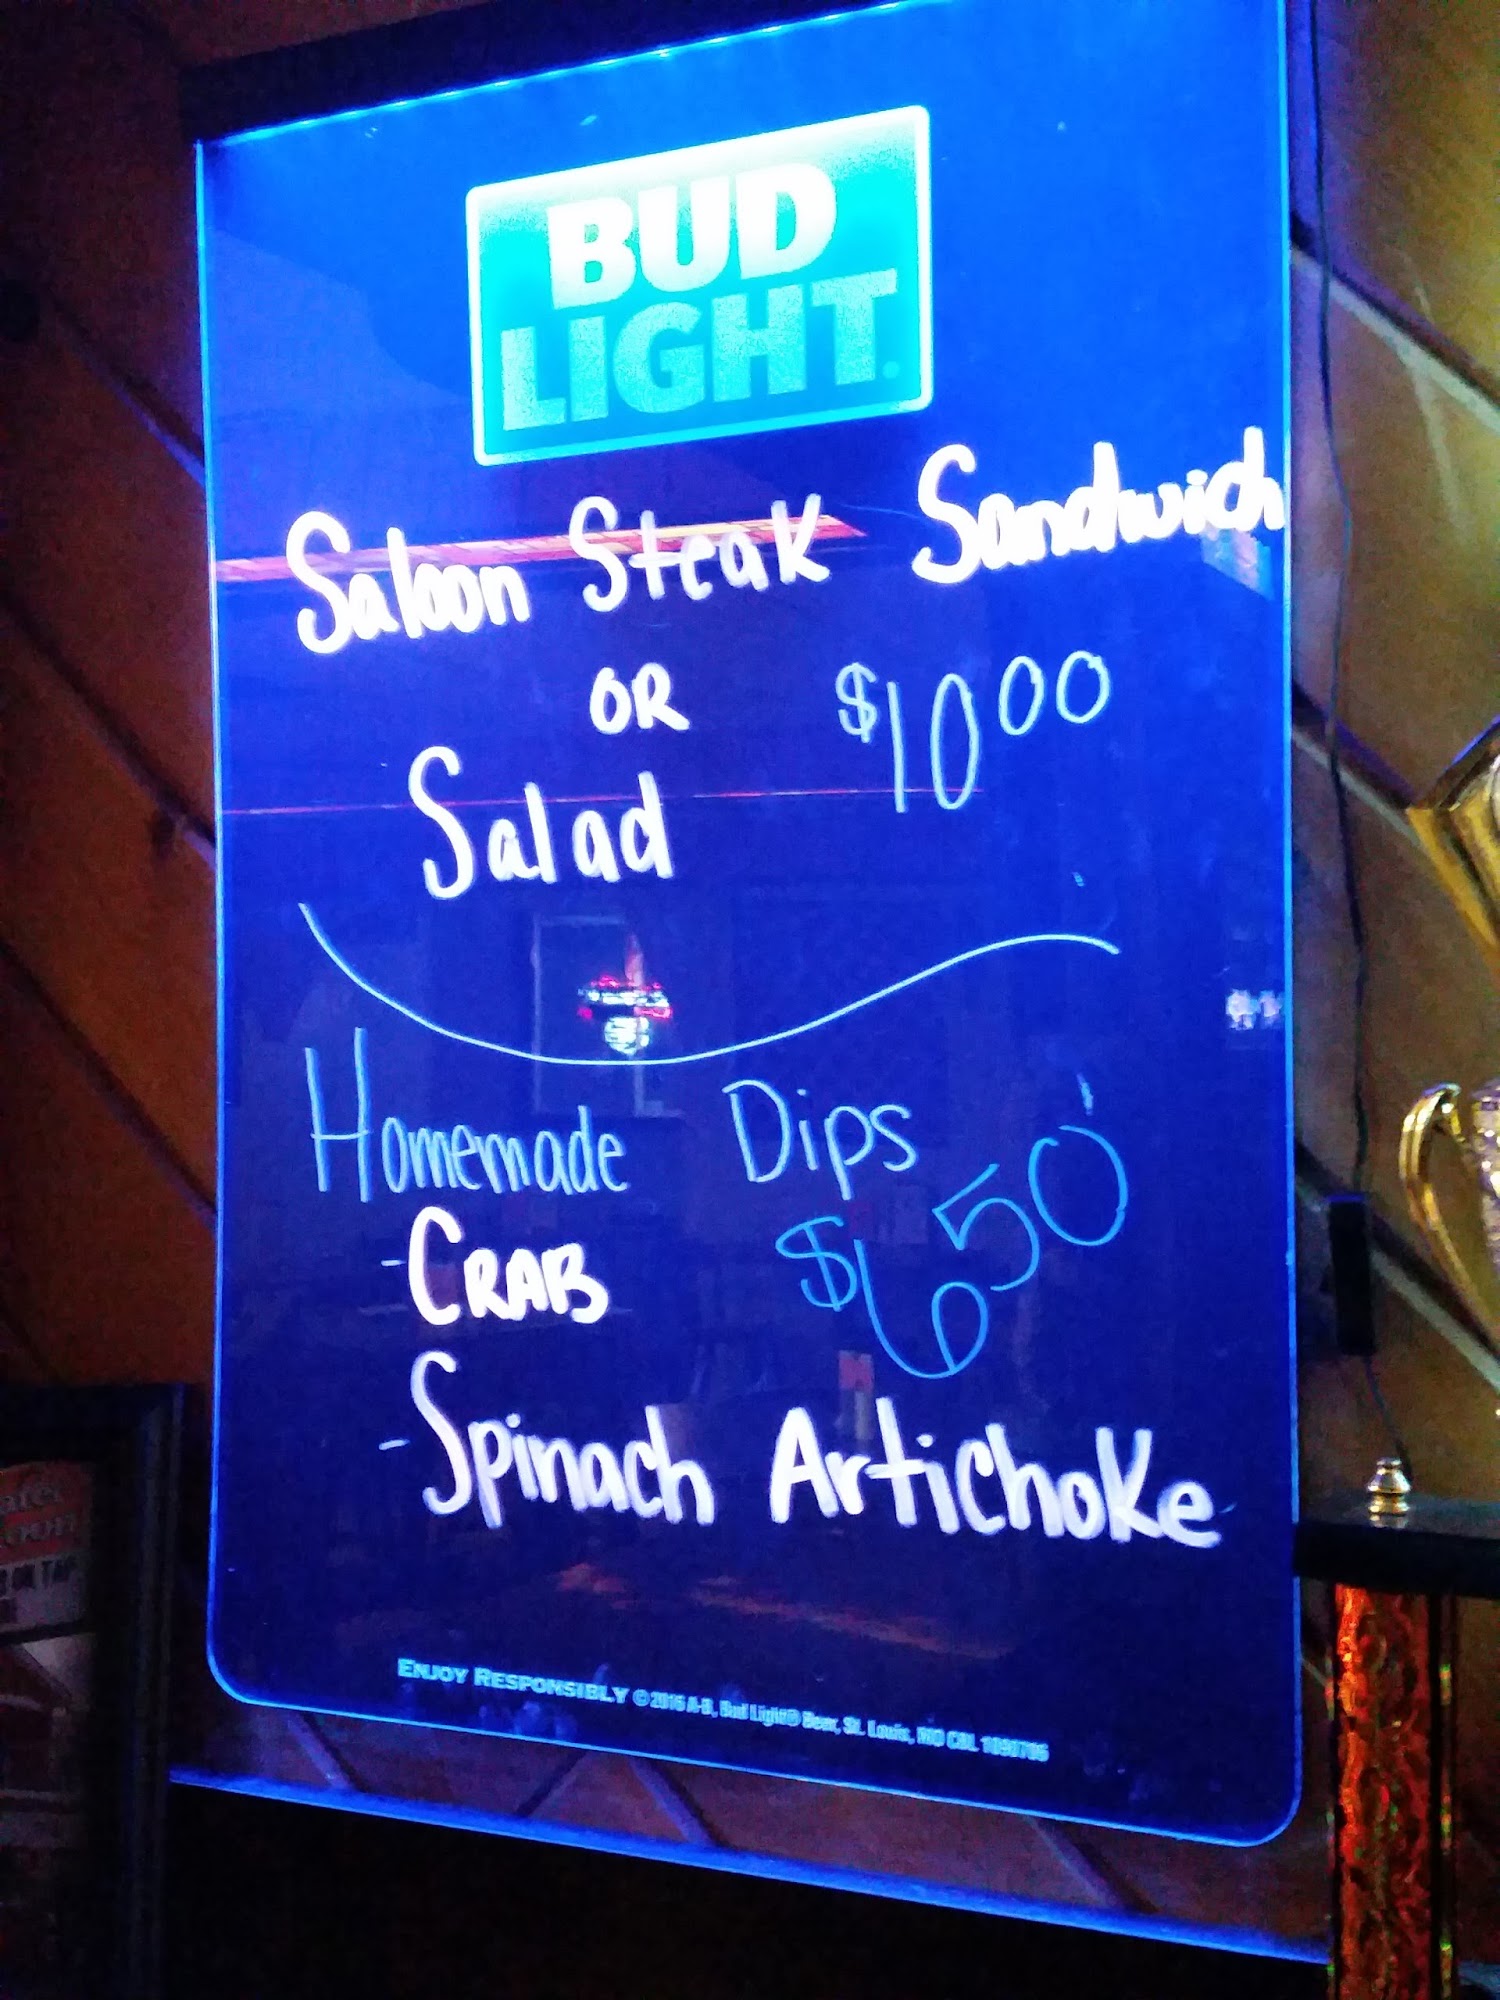 BUD
LIGHT.
Saloon Steak Sandwich
OR $10.00
Salad
Homemade Dips
- CRAB $6.50
- Spinach Artichoke
ENJOY RESPONSIBLY © 2016 A-B, Bud Light® Beer, St. Louis, MO
ON TAP